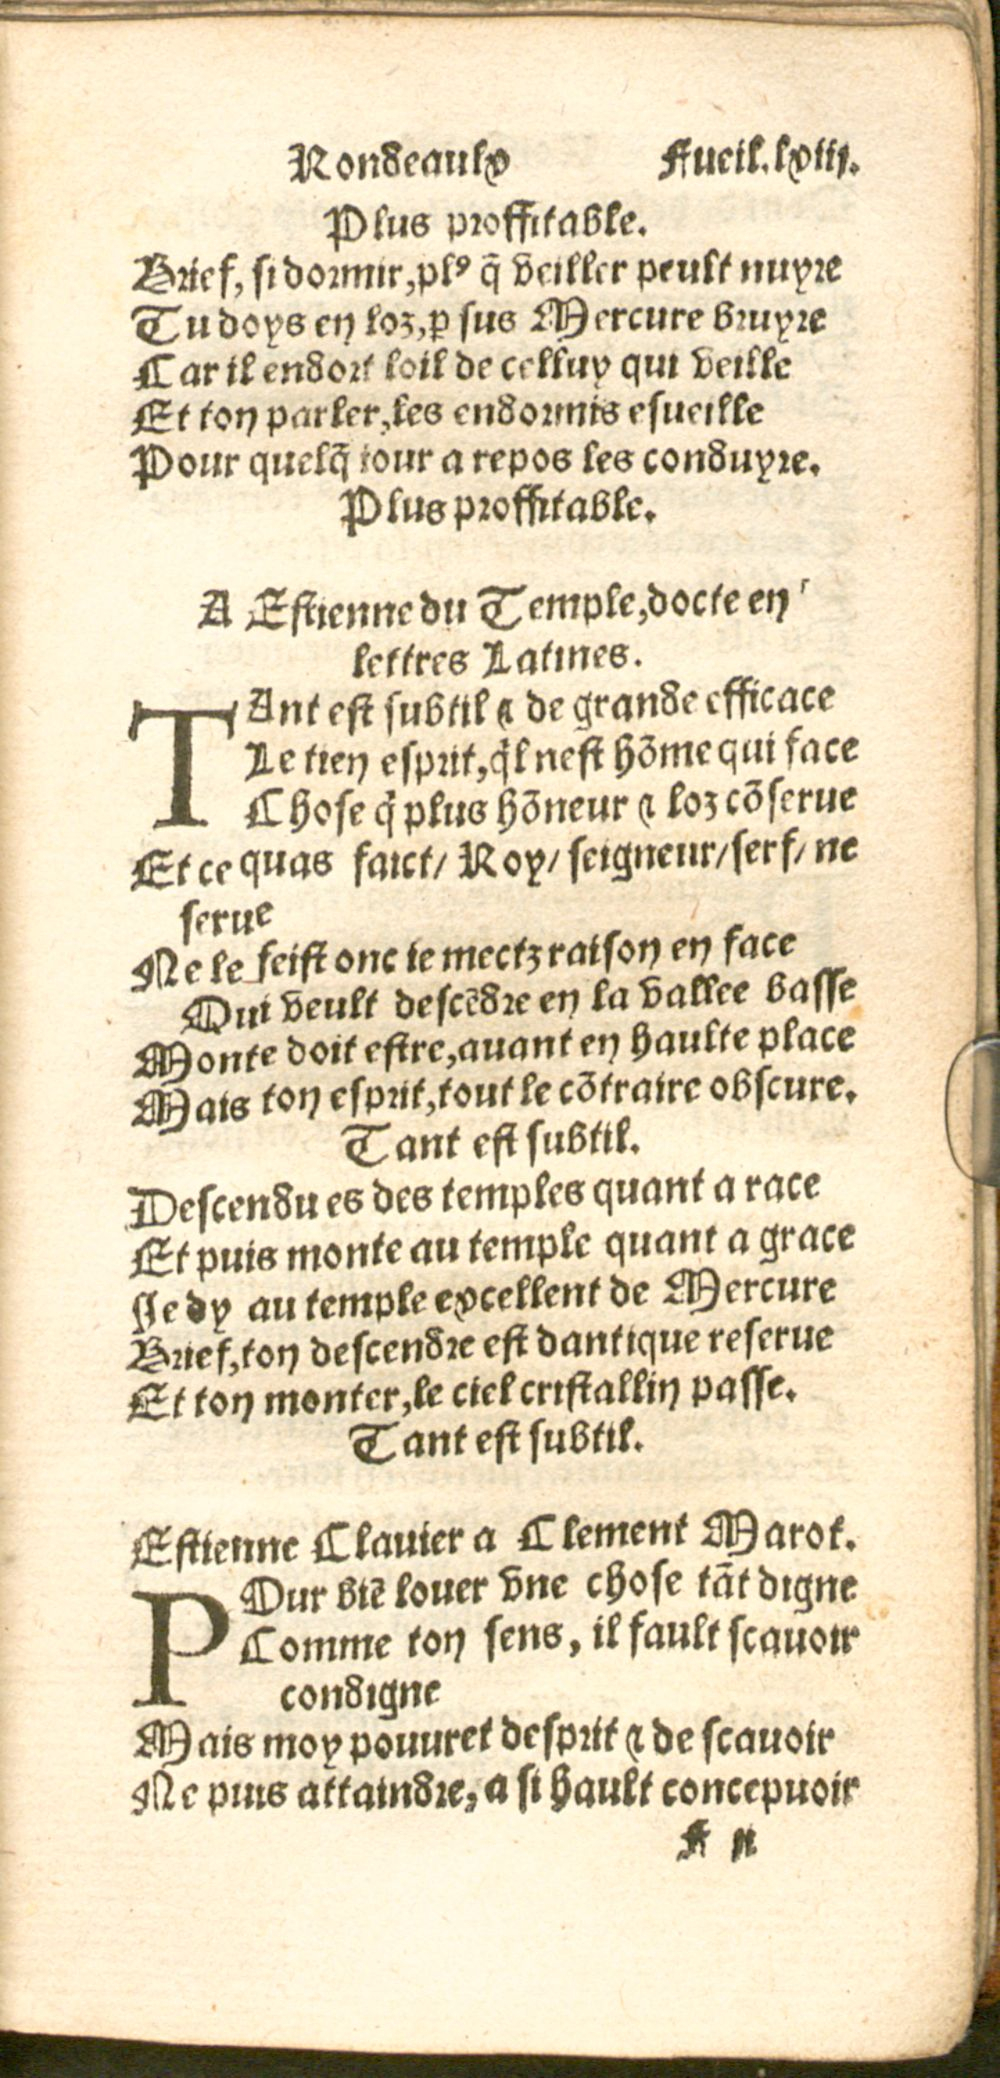 Rondeaulx Fueil.lxiij.
Plus proffitable.
Brief, si dormir, plꝰ q̃ veiller peult nuyre
Tu doys en loz, ꝑ sus Mercure bruyre
Car il endort loil de celluy qui veille
Et ton parler, les endormis esueille
Pour quelq̃ iour a repos les conduyre.
Plus proffitable.
A Estienne du Temple, docte en
lettres Latines.
TAnt est subtil & de grande efficace
Le tien esprit, q̃l nest hõme qui face
Chose q̃ plus hõneur & loz cõserue
Et ce quas faict/ Roy/ seigneur/ serf/ ne
serue
Ne le feist onc ie mectz raison en face
Qui veult descẽdre en la vallee basse
Monte doit estre, auant en haulte place
Mais ton esprit, tout le cõtraire obscure.
Tant est subtil.
Descendu es des temples quant a race
Et puis monte au temple quant a grace
Je dy au temple excellent de Mercure
Brief, ton descendre est dantique reserue
Et ton monter, le ciel cristallin passe.
Tant est subtil.
Estienne Clauier a Clement Marot.
POur biẽ louer vne chose tãt digne
Comme ton sens, il fault scauoir
condigne
Mais moy pouuret desprit & de scauoir
Ne puis attaindre, a si hault concepuoir
F ij